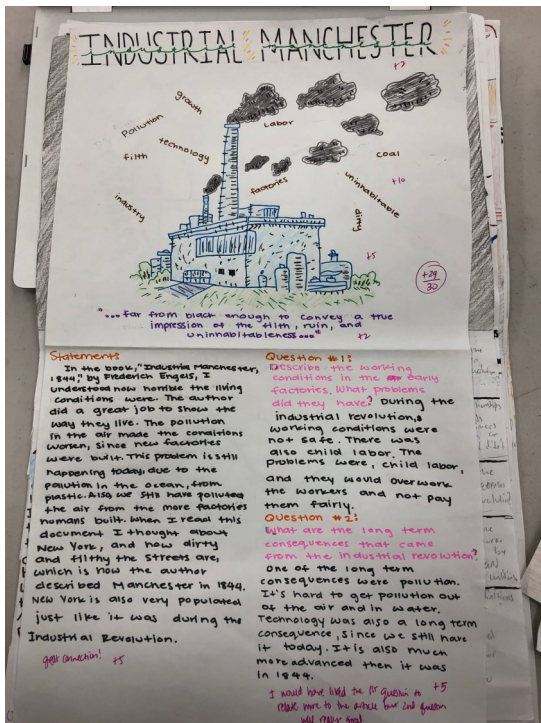 INDUSTRIAL MANCHESTER
+2
growth
Pollution
Labor
technology
filth
coal
factories
uninhabitable
+10
industry
dirty
+5
+29
30
"...far from black enough to convey a true
impression of the filth, ruin, and
uninhabitableness..."
+2
Statement:
In the book, "Industrial Manchester,
1844," by Frederich Engels, I
understood how horrible the living
conditions were. The author
did a great job to show the
way they live. The pollution
in the air made the conditions
worsen, since new factories
were built. This problem is still
happening today, due to the
pollution in the ocean, from
plastic. Also, we still have polluted
the air from the more factories
humans built. When I read this
document I thought about
New York, and how dirty
and filthy the streets are,
which is how the author
described Manchester in 1844.
New York is also very populated
just like it was during the
Industrial Revolution.
great connection! +5
Question #1:
Describe the working
conditions in the early
factories. What problems
did they have? During the
industrial revolution,
working conditions were
not safe. There was
also child labor. The
problems were, child labor,
and they would overwork
the workers and not pay
them fairly.
Question #2:
What are the long term
consequences that came
from the industrial revolution?
One of the long term
consequences were pollution.
It's hard to get pollution out
of the air and in water.
Technology was also a long term
consequence, since we still have
it today. It is also much
more advanced then it was
in 1844.
+5
I would have liked the 1st question to
relate more to the article your 2nd question
was really good.